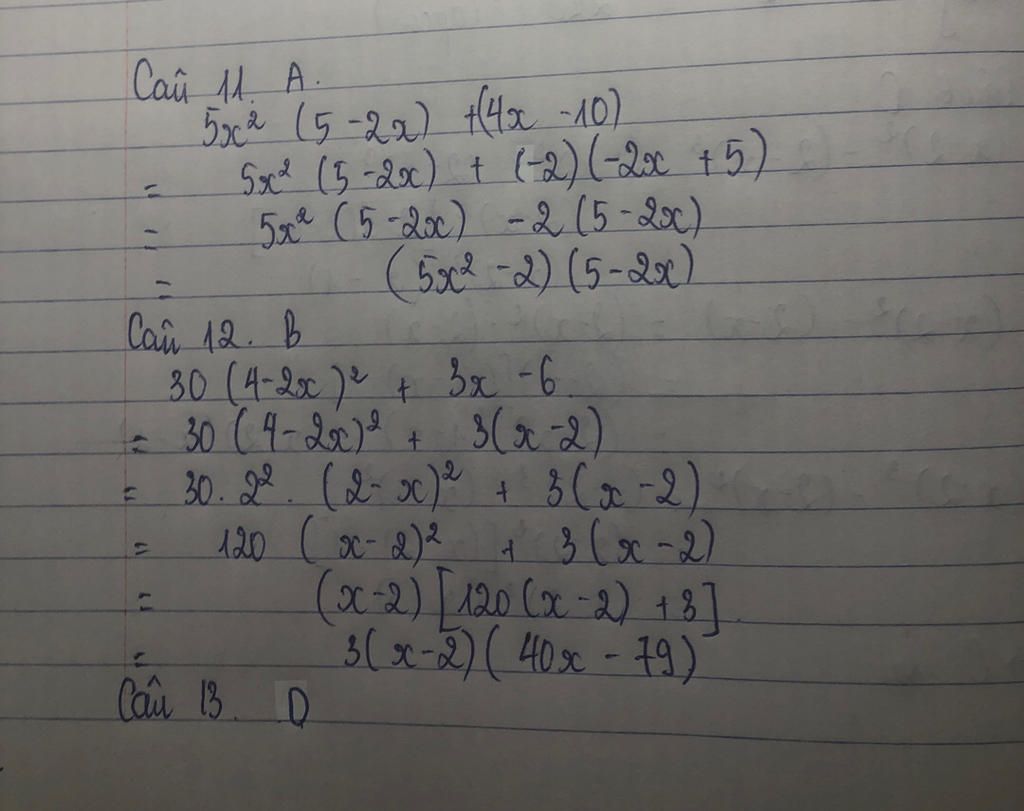 Câu 11. A.
5x² (5 - 2x) + (4x - 10)
= 5x² (5 - 2x) + (-2)(-2x + 5)
= 5x² (5 - 2x) - 2 (5 - 2x)
= (5x² - 2)(5 - 2x)
Câu 12. B
30 (4 - 2x)² + 3x - 6
= 30 (4 - 2x)² + 3(x - 2)
= 30. 2². (2 - x)² + 3(x - 2)
= 120 (x - 2)² + 3(x - 2)
= (x - 2) [120(x - 2) + 3]
= 3(x - 2)(40x - 79)
Câu 13. D